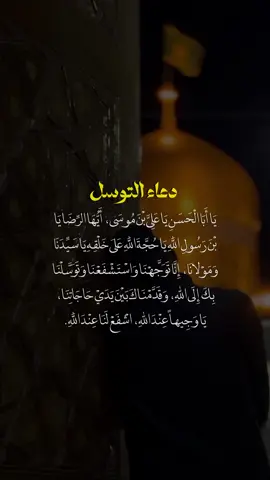 دعاء التوسل
يَا أَبَا الْحَسَنِ يَا عَلِيَّ بْنَ مُوسَى، أَيُّهَا الرِّضَا يَا
بْنَ رَسُولِ اللّٰهِ يَا حُجَّةَ اللّٰهِ عَلَى خَلْقِهِ يَا سَيِّدَنَا
وَمَوْلَانَا، إِنَّا تَوَجَّهْنَا وَاسْتَشْفَعْنَا وَتَوَسَّلْنَا
بِكَ إِلَى اللّٰهِ، وَقَدَّمْنَاكَ بَيْنَ يَدَيْ حَاجَاتِنَا،
يَا وَجِيهاً عِنْدَ اللّٰهِ، اشْفَعْ لَنَا عِنْدَ اللّٰهِ.